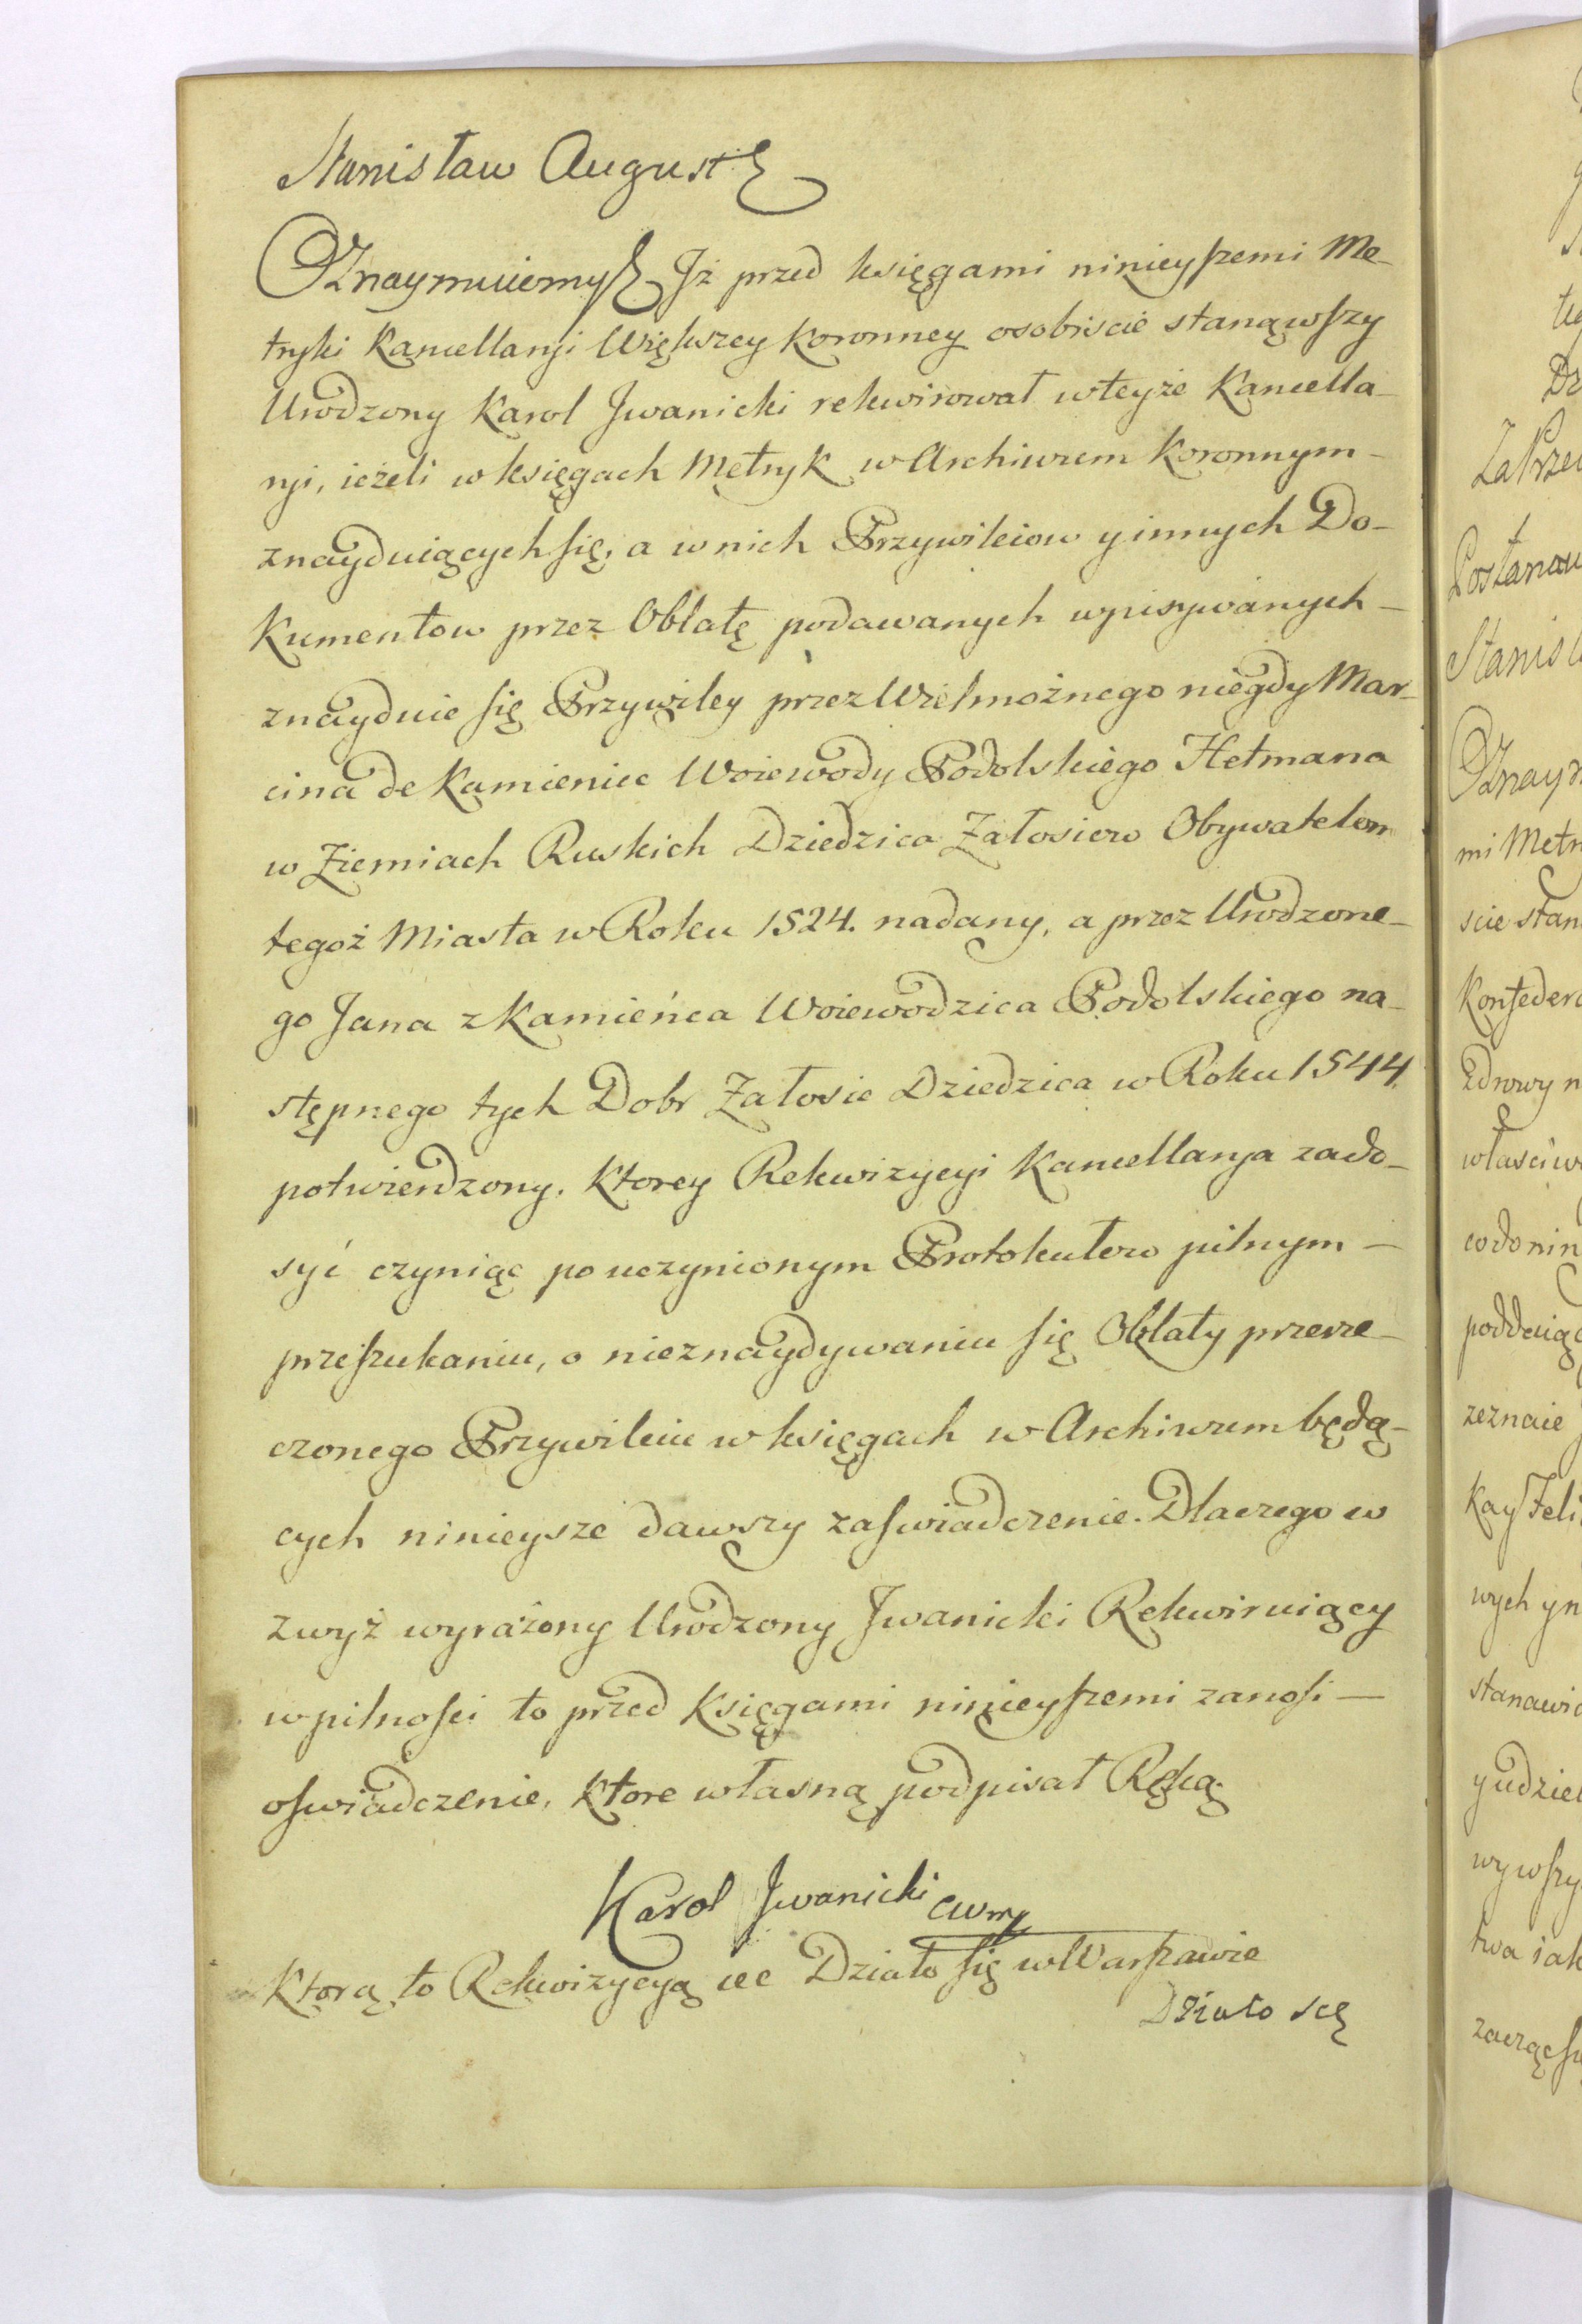 Stanisław August
Oznaymuiemy Jż przed księgami ninieyszemi Me-
tryki Kancellaryi Większey Koronney osobiscie stanąwszy
Urodzony Karol Jwanicki rekwirował wteyże Kancella-
ryi, ieżeli w księgach Metryk w Archiwum Koronnym-
znayduiących się, a w nich Przywileiow y innych Do-
kumentow przez Oblatę podawanych wpisywanych-
znayduie się Przywiley przez Wielmożnego niegdy Mar-
cina de Kamieniec Woiewody Podolskiego Hetmana
w Ziemiach Ruskich Dziedzica Załosiow Obywatelom
tegoż Miasta w Roku 1524. nadany, a przez Urodzone-
go Jana z Kamieńca Woiewodzica Podolskiego na-
stępnego tych Dobr Załosie Dziedzica w Roku 1544.
potwierdzony. Ktorey Rekwizycyi Kancellarya zado-
syć czyniąc po uczynionym Protokułow pilnym-
przeszukaniu, o nieznaydywaniu się Oblaty przerze-
czonego Przywileiu w księgach w Archiwum będą-
cych ninieysze dawszy zaswiadczenie. Dlaczego w
zwyż wyrażony Urodzony Jwanicki Rekwiruiący
w pilnosci to przed Księgami ninieyszemi zanosi-
oswiadczenie, ktore własną podpisał Ręką.
Karol Jwanicki
Ktorą to Rekwizycyą etc Działo się w Warszawie
Działo się
Zaprze
Postanow
Stanisł
Oznaym
mi Metr
scie stan
Konfeder
Zdrowy n
własciw
co do nin
podduiąc
zeznaie
kay Feli
wych yn
stanawia
y udziel
wywszy
twa iak